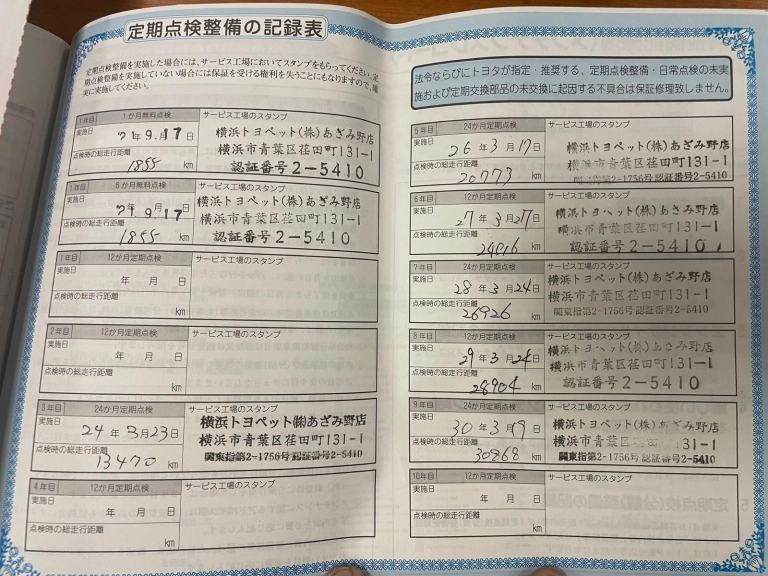 定期点検整備の記録表
定期点検整備を実施した場合には、サービス工場においてスタンプをもらってください。定
期点検整備を実施していない場合には保証を受ける権利を失うことにもなりますので、確
実に実施してください。
1年目 1か月無料点検 サービス工場のスタンプ
実施日
年9月17日
横浜トヨペット(株)あざみ野店
横浜市青葉区荏田町131-1
認証番号2-5410
点検時の総走行距離
1855 km
1年目 6か月無料点検 サービス工場のスタンプ
実施日
年9月17日
横浜トヨペット(株)あざみ野店
横浜市青葉区荏田町131-1
認証番号2-5410
点検時の総走行距離
1855 km
1年目 12か月定期点検 サービス工場のスタンプ
実施日
年 月 日
点検時の総走行距離
km
2年目 12か月定期点検 サービス工場のスタンプ
実施日
年 月 日
点検時の総走行距離
km
3年目 24か月定期点検 サービス工場のスタンプ
実施日
24年3月23日
横浜トヨペット(株)あざみ野店
横浜市青葉区荏田町131-1
関東指第2-1756号 認証番号2-5410
点検時の総走行距離
13470 km
4年目 12か月定期点検 サービス工場のスタンプ
実施日
年 月 日
点検時の総走行距離
km
法令ならびにトヨタが指定・推奨する、定期点検整備・日常点検の未実
施および定期交換部品の未交換に起因する不具合は保証修理致しません。
5年目 24か月定期点検 サービス工場のスタンプ
実施日
26年3月17日
横浜トヨペット(株)あざみ野店
横浜市青葉区荏田町131-1
関東指第2-1756号 認証番号2-5410
点検時の総走行距離
20773 km
6年目 12か月定期点検 サービス工場のスタンプ
実施日
27年3月27日
横浜トヨペット(株)あざみ野店
横浜市青葉区荏田町131-1
認証番号2-5410
点検時の総走行距離
km
7年目 24か月定期点検 サービス工場のスタンプ
実施日
28年3月24日
横浜トヨペット(株)あざみ野店
横浜市青葉区荏田町131-1
関東指第2-1756号 認証番号2-5410
点検時の総走行距離
26926 km
8年目 12か月定期点検 サービス工場のスタンプ
実施日
29年3月24日
横浜トヨペット(株)あざみ野店
横浜市青葉区荏田町131-1
認証番号2-5410
点検時の総走行距離
28904 km
9年目 24か月定期点検 サービス工場のスタンプ
実施日
30年3月9日
横浜トヨペット(株)あざみ野店
横浜市青葉区荏田町131-1
関東指第2-1756号 認証番号2-5410
点検時の総走行距離
30868 km
10年目 12か月定期点検 サービス工場のスタンプ
実施日
年 月 日
点検時の総走行距離
km